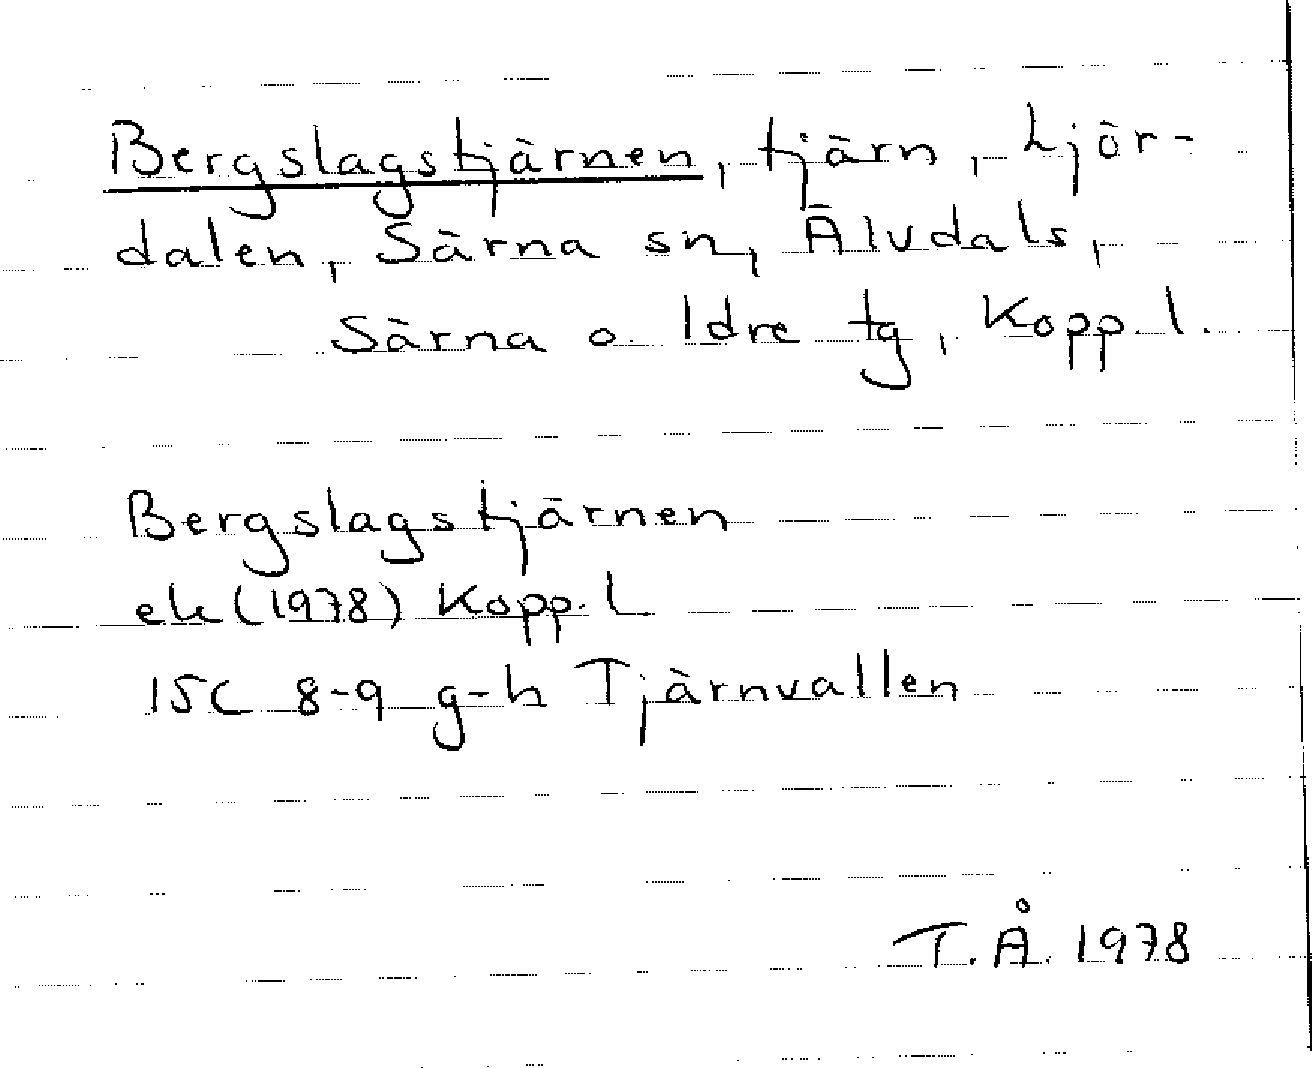 Bergslagstjärnen, tjärn, Ljör-
dalen, Särna sn, Älvdals,
Särna o. Idre tg, Kopp. l.
Bergslagstjärnen
ek (1978) Kopp. L
15C 8-9 g-h Tjärnvallen
T.Å. 1978